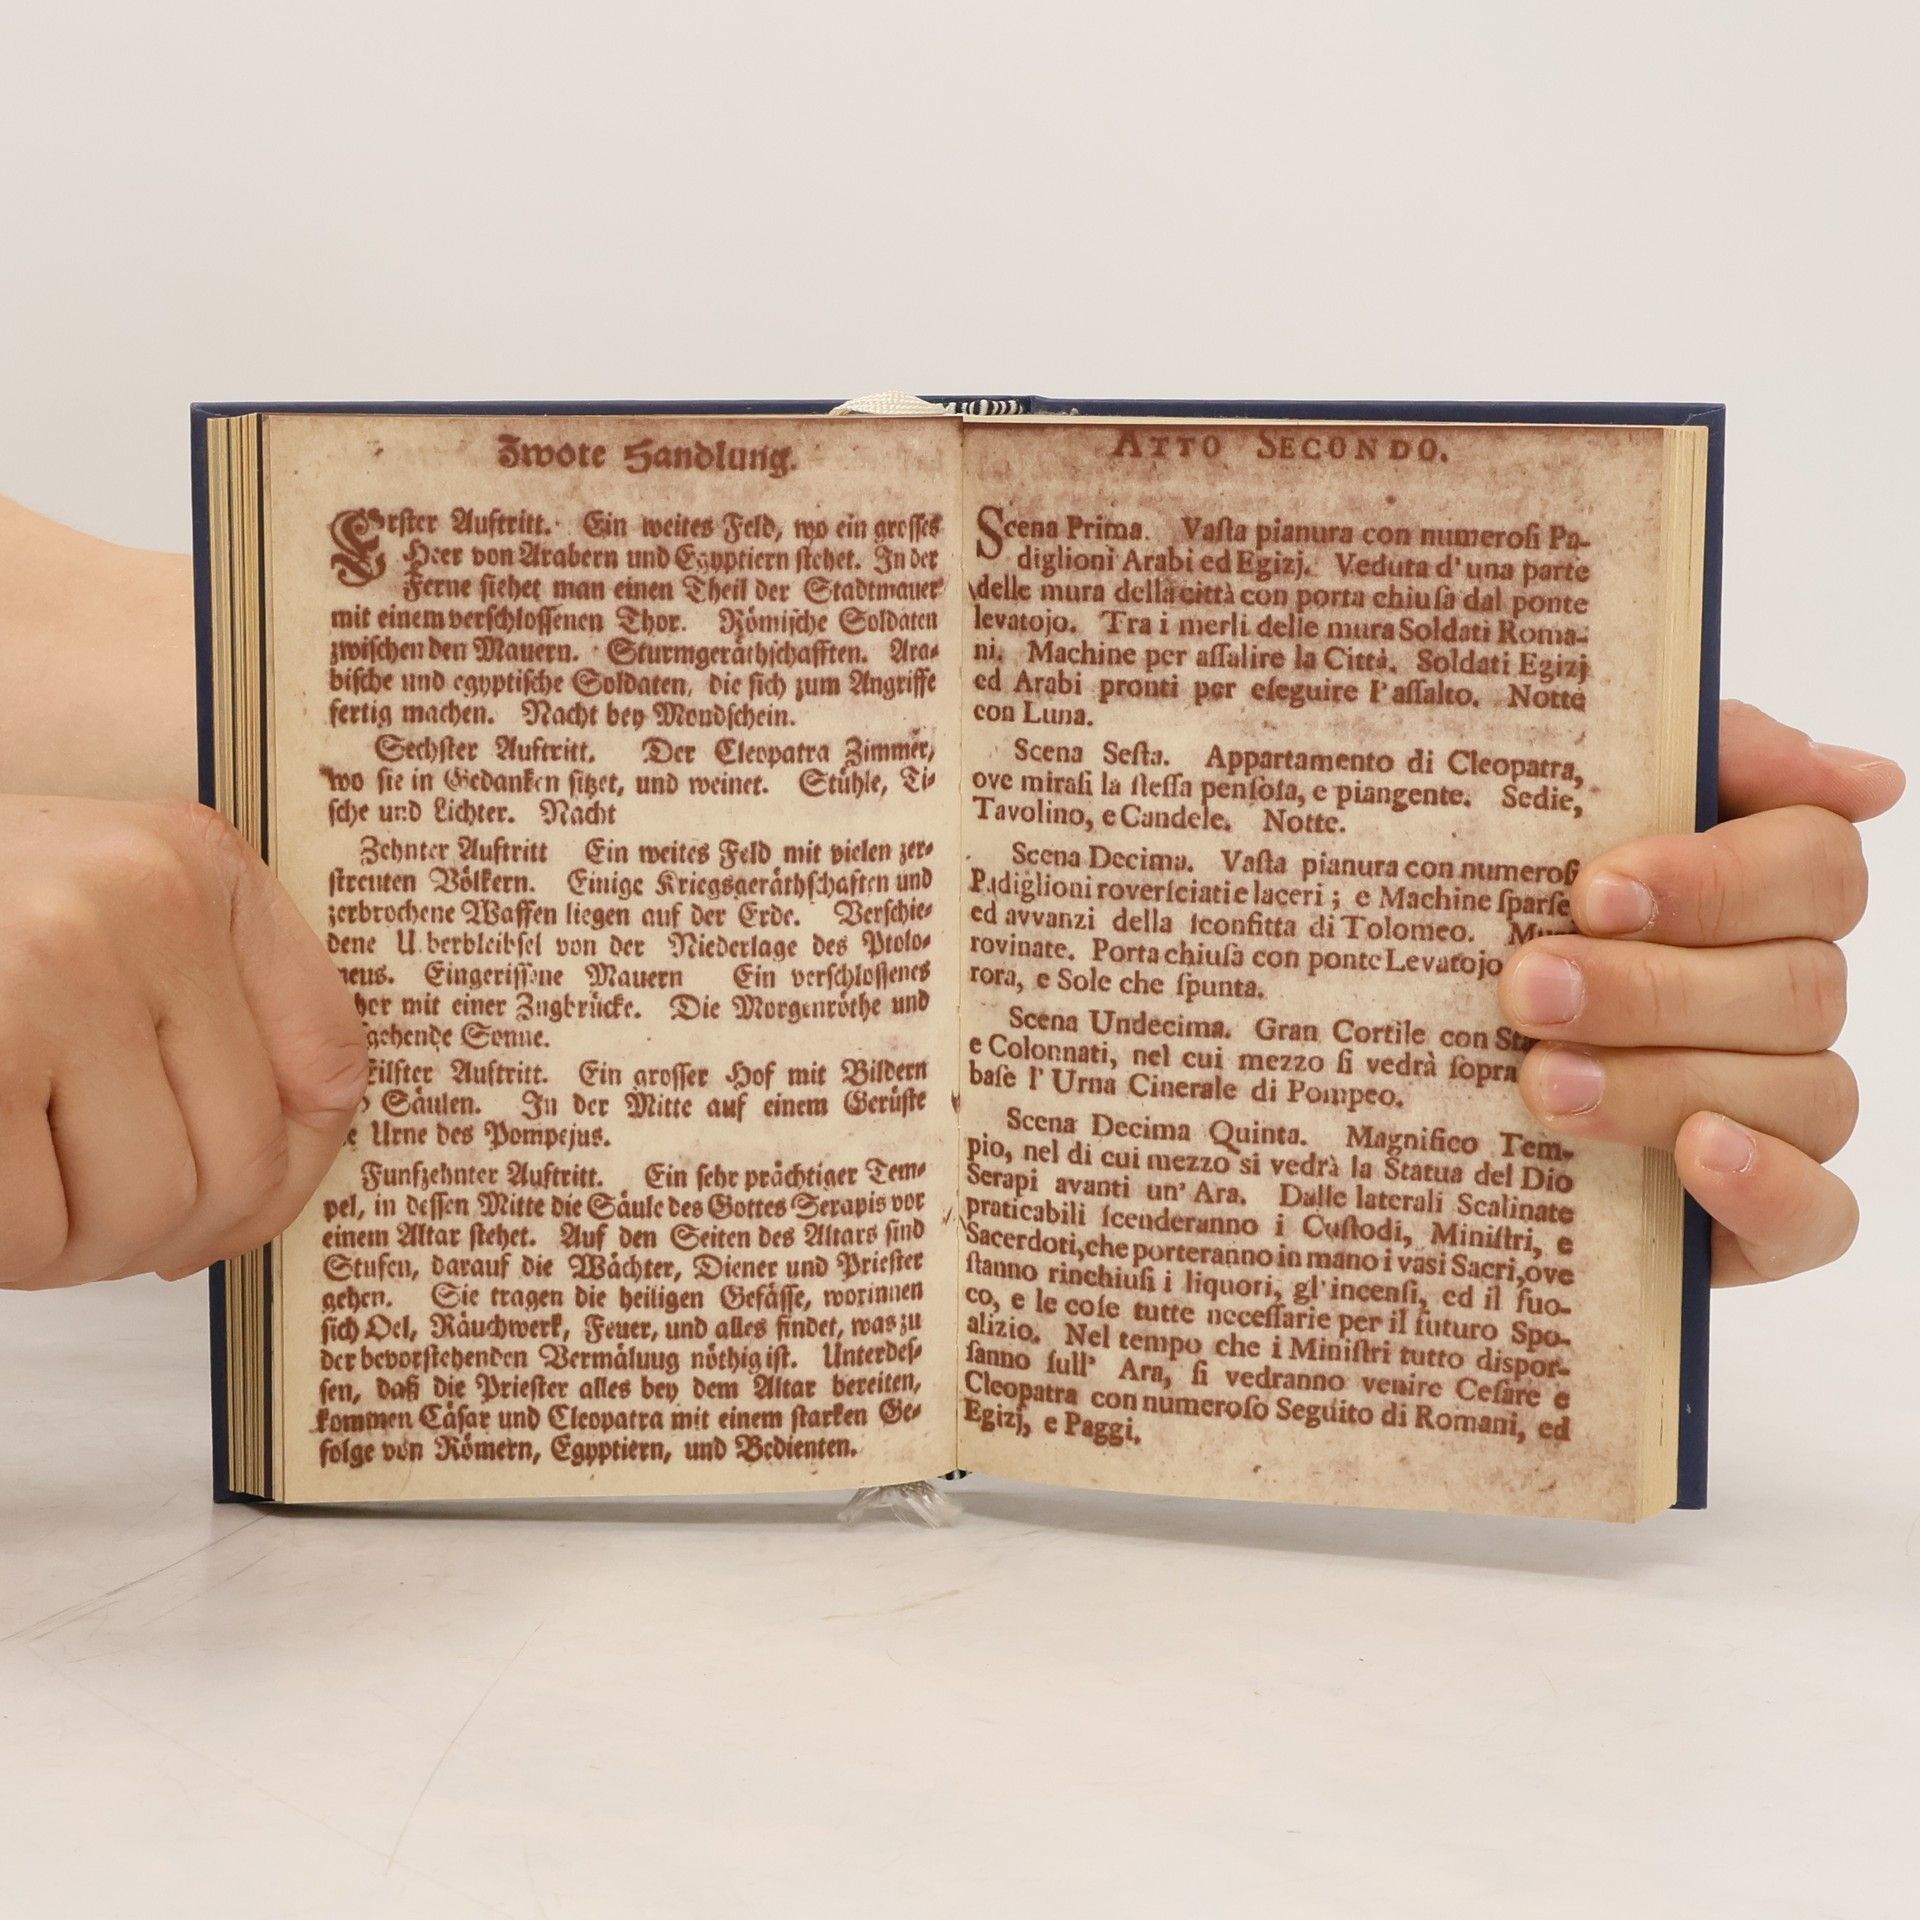 Zwote Handlung.
Erster Auftritt. Ein weites Feld, wo ein grosses
Heer von Arabern und Egyptiern stehet. In der
Ferne siehet man einen Theil der Stadtmauer
mit einem verschlossenen Thor. Römische Soldaten
zwischen den Mauern. Sturmgeräthschafften. Ara-
bische und egyptische Soldaten, die sich zum Angriffe
fertig machen. Nacht bey Mondschein.
Sechster Auftritt. Der Cleopatra Zimmer,
wo sie in Gedanken sitzet, und weinet. Stühle, Ti-
sche und Lichter. Nacht
Zehnter Auftritt Ein weites Feld mit vielen zer-
streuten Völkern. Einige Kriegsgeräthschaften und
zerbrochene Waffen liegen auf der Erde. Verschie-
dene U.berbleibsel von der Niederlage des Ptolo-
meus. Eingerissene Mauern Ein verschlossenes
mit einer Zugbrücke. Die Morgenröthe und
gehende Sonne.
Eilfter Auftritt. Ein grosser Hof mit Bildern
Säulen. In der Mitte auf einem Gerüste
Urne des Pompejus.
Funfzehnter Auftritt. Ein sehr prächtiger Tem-
pel, in dessen Mitte die Säule des Gottes Serapis vor
einem Altar stehet. Auf den Seiten des Altars sind
Stufen, darauf die Wächter, Diener und Priester
gehen. Sie tragen die heiligen Gefässe, worinnen
sich Oel, Räuchwerk, Feuer, und alles findet, was zu
der bevorstehenden Vermäluug nöthig ist. Unterdes-
sen, daß die Priester alles bey dem Altar bereiten,
kommen Cäsar und Cleopatra mit einem starken Ge-
folge von Römern, Egyptiern, und Bedienten.
ATTO SECONDO.
Scena Prima. Vaſta pianura con numeroſi Pa-
diglioni Arabi ed Egizj. Veduta d' una parte
delle mura della città con porta chiuſa dal ponte
levatojo. Tra i merli delle mura Soldati Roma-
ni. Machine per aſſalire la Città. Soldati Egizj
ed Arabi pronti per eſeguire l' aſſalto. Notte
con Luna.
Scena Seſta. Appartamento di Cleopatra,
ove miraſi la ſteſſa penſoſa, e piangente. Sedie,
Tavolino, e Candele. Notte.
Scena Decima. Vaſta pianura con numeroſi
Padiglioni roverſciati e laceri ; e Machine ſparſe
ed avvanzi della ſconfitta di Tolomeo.
rovinate. Porta chiuſa con ponte Levatojo
rora, e Sole che ſpunta.
Scena Undecima. Gran Cortile con
e Colonnati, nel cui mezzo ſi vedrà ſopra
baſe l' Urna Cinerale di Pompeo.
Scena Decima Quinta. Magnifico Tem-
pio, nel di cui mezzo si vedrà la Statua del Dio
Serapi avanti un' Ara. Dalle laterali Scalinate
praticabili ſcenderanno i Cuſtodi, Miniſtri, e
Sacerdoti, che porteranno in mano i vasi Sacri, ove
ſtanno rinchiuſi i liquori, gl' incenſi, ed il fuo-
co, e le coſe tutte neceſſarie per il futuro Spo-
alizio. Nel tempo che i Miniſtri tutto dispor-
ſanno ſull' Ara, ſi vedranno venire Ceſare e
Cleopatra con numeroſo Seguito di Romani, ed
Egizj, e Paggi.